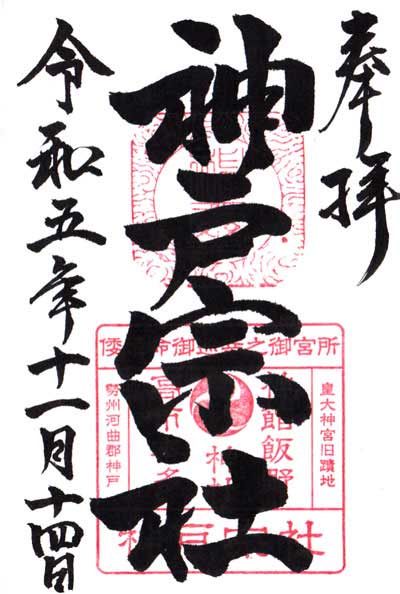 奉拝
神戸宗社
令和五年十一月十四日
皇大神宮旧蹟地
勢州河曲郡神戸